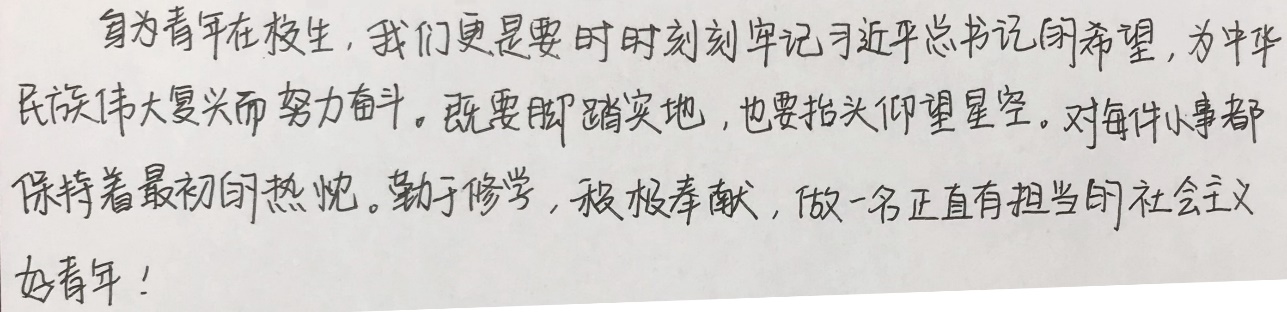 身为青年在校生，我们更是要时时刻刻牢记习近平总书记的希望，为中华
民族伟大复兴而努力奋斗。既要脚踏实地，也要抬头仰望星空。对每件小事都
保持着最初的热忱。勤于修学，积极奉献，做一名正直有担当的社会主义
好青年！